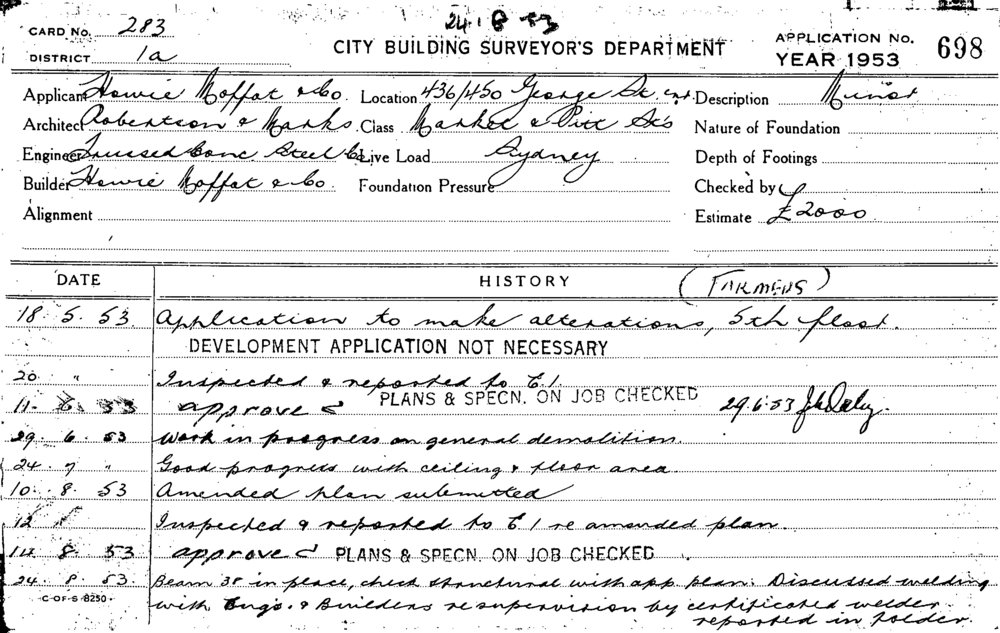 24.8.53
CARD No. 283
CITY BUILDING SURVEYOR'S DEPARTMENT
APPLICATION No. 698
DISTRICT 1a
YEAR 1953
Applicant Howie Moffat & Co. Location 436/450 George St. cnr. Description Minor
Architect Robertson & Marks. Class Market & Pitt Sts Nature of Foundation
Engineer Trussed Conc Steel Co Live Load Sydney Depth of Footings
Builder Howie Moffat & Co. Foundation Pressure Checked by
Alignment Estimate £2000
DATE HISTORY (FARMERS)
18. 5. 53 Application to make alterations, 5th floor.
DEVELOPMENT APPLICATION NOT NECESSARY
20 " Inspected & reported to E1.
11. 6. 53 approved PLANS & SPECN. ON JOB CHECKED 29.6.53
29. 6. 53 Work in progress on general demolition.
24 7 " Good progress with ceiling & floor area.
10. 8. 53 Amended plan submitted
12 Inspected & reported to E1 re amended plan.
14 8. 53 approved PLANS & SPECN. ON JOB CHECKED
24. 8. 53. Beam in place, check structural with app plan. Discussed welding
C-OF-S 8250 with Engs. & Builders re supervision by certificated welder
reported in folder.